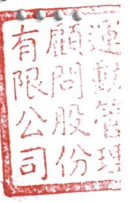 運動管理
顧問股份
有限公司